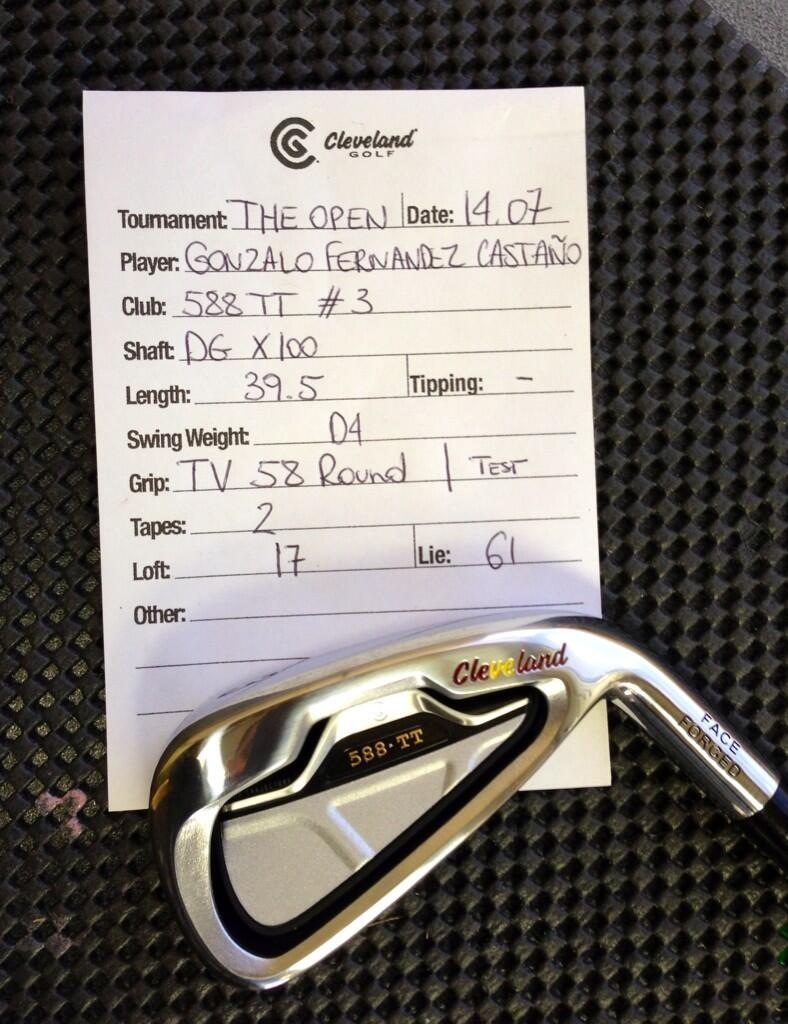 CG Cleveland
GOLF
Tournament: THE OPEN Date: 14.07
Player: GONZALO FERNANDEZ CASTAÑO
Club: 588 TT #3
Shaft: DG X100
Length: 39.5 Tipping: -
Swing Weight: D4
Grip: TV 58 Round | TEST
Tapes: 2
Loft: 17 Lie: 61
Other:
Cleveland
588·TT
FACE
FORGED